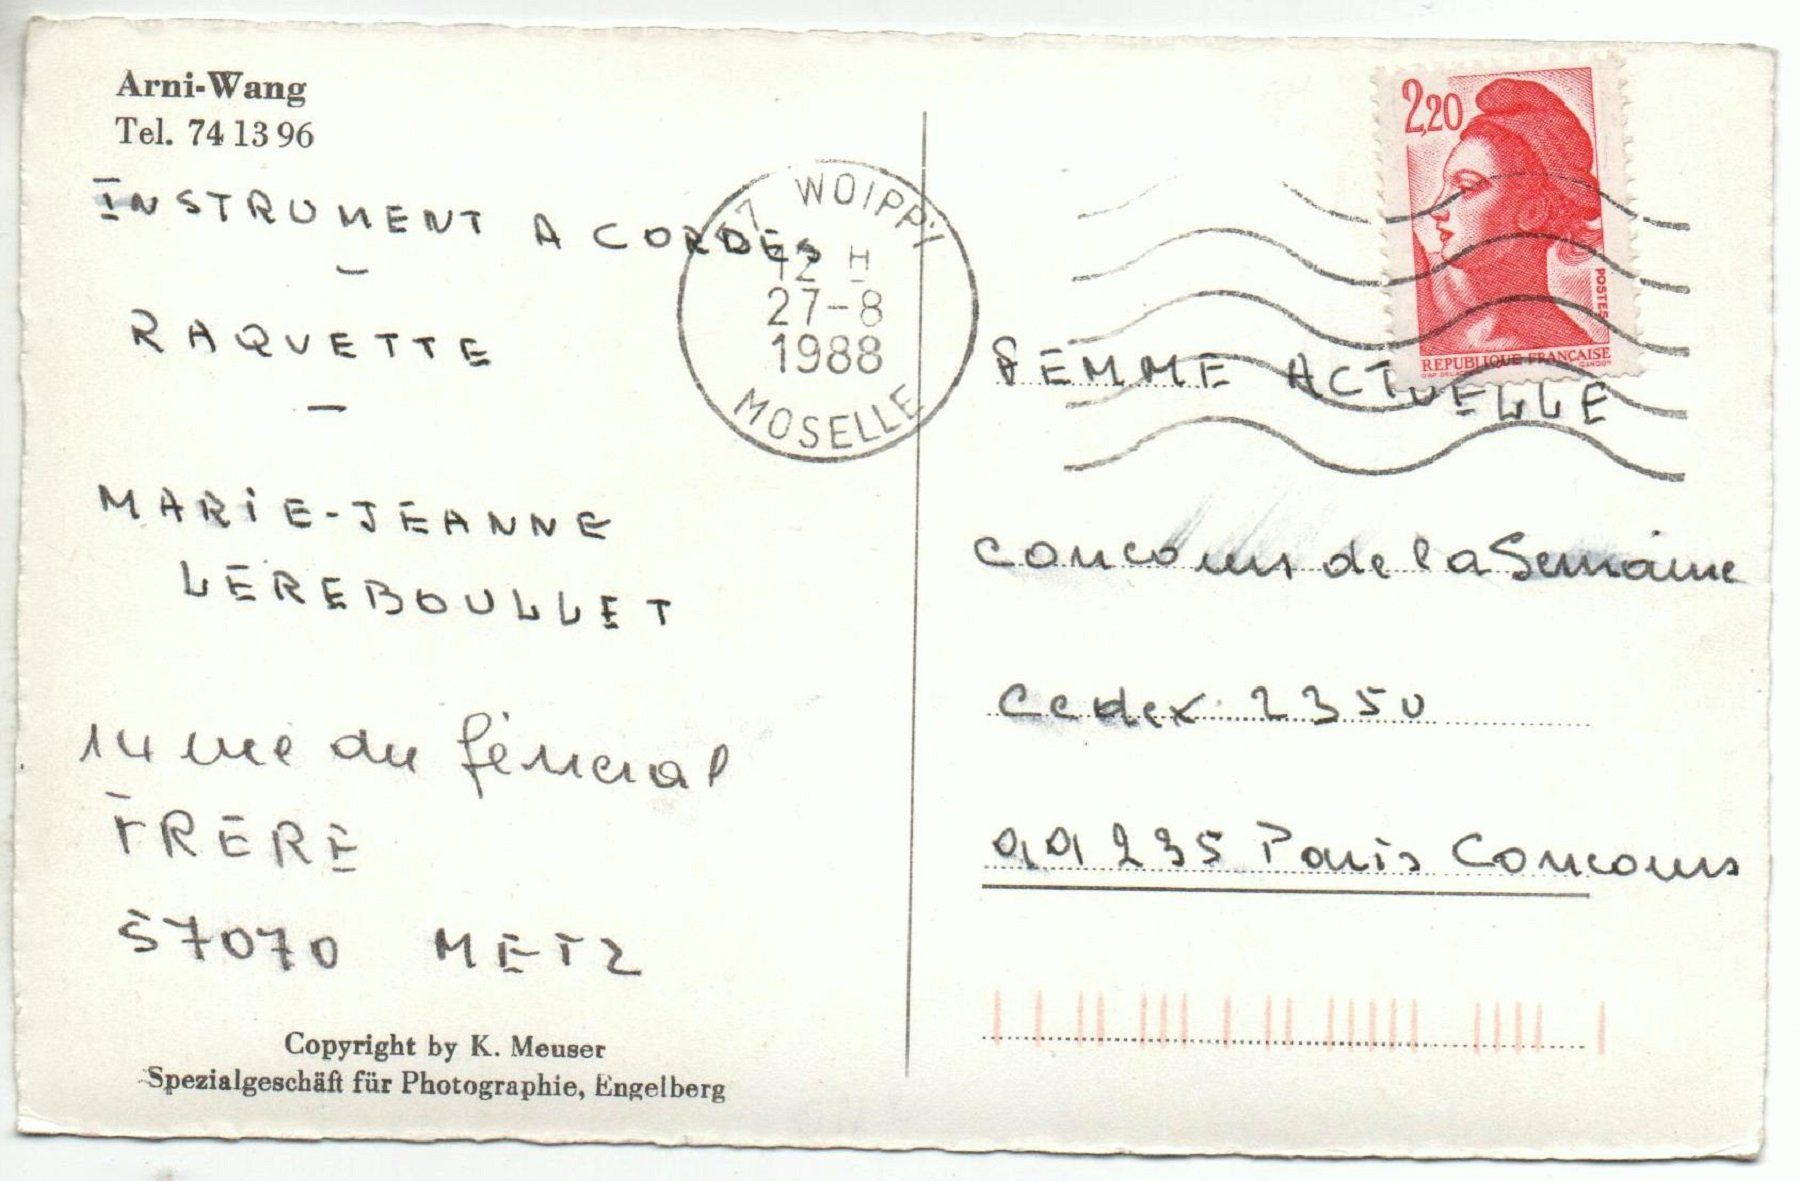 Arni-Wang
Tel. 74 13 96
INSTRUMENT A CORDES
-
RAQUETTE
-
MARIE-JEANNE
LEREBOULLET
14 rue du Général
FRERE
57070 METZ
Copyright by K. Meuser
Spezialgeschäft für Photographie, Engelberg
57 WOIPPY
12 H
27-8
1988
MOSELLE
2,20
POSTES
REPUBLIQUE FRANÇAISE
FEMME ACTUELLE
concours de la Semaine
Cedex 2350
99235 Paris Concours